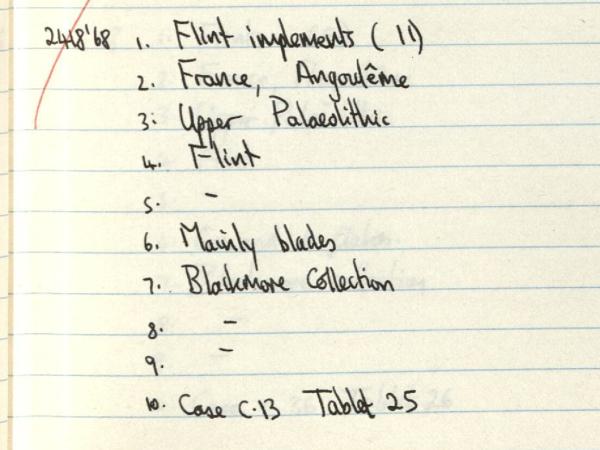 2418'68 1. Flint implements (11)
2. France, Angoulême
3. Upper Palaeolithic
4. Flint
5. -
6. Mainly blades
7. Blackmore Collection
8. -
9. -
10. Case C.13 Tablet 25